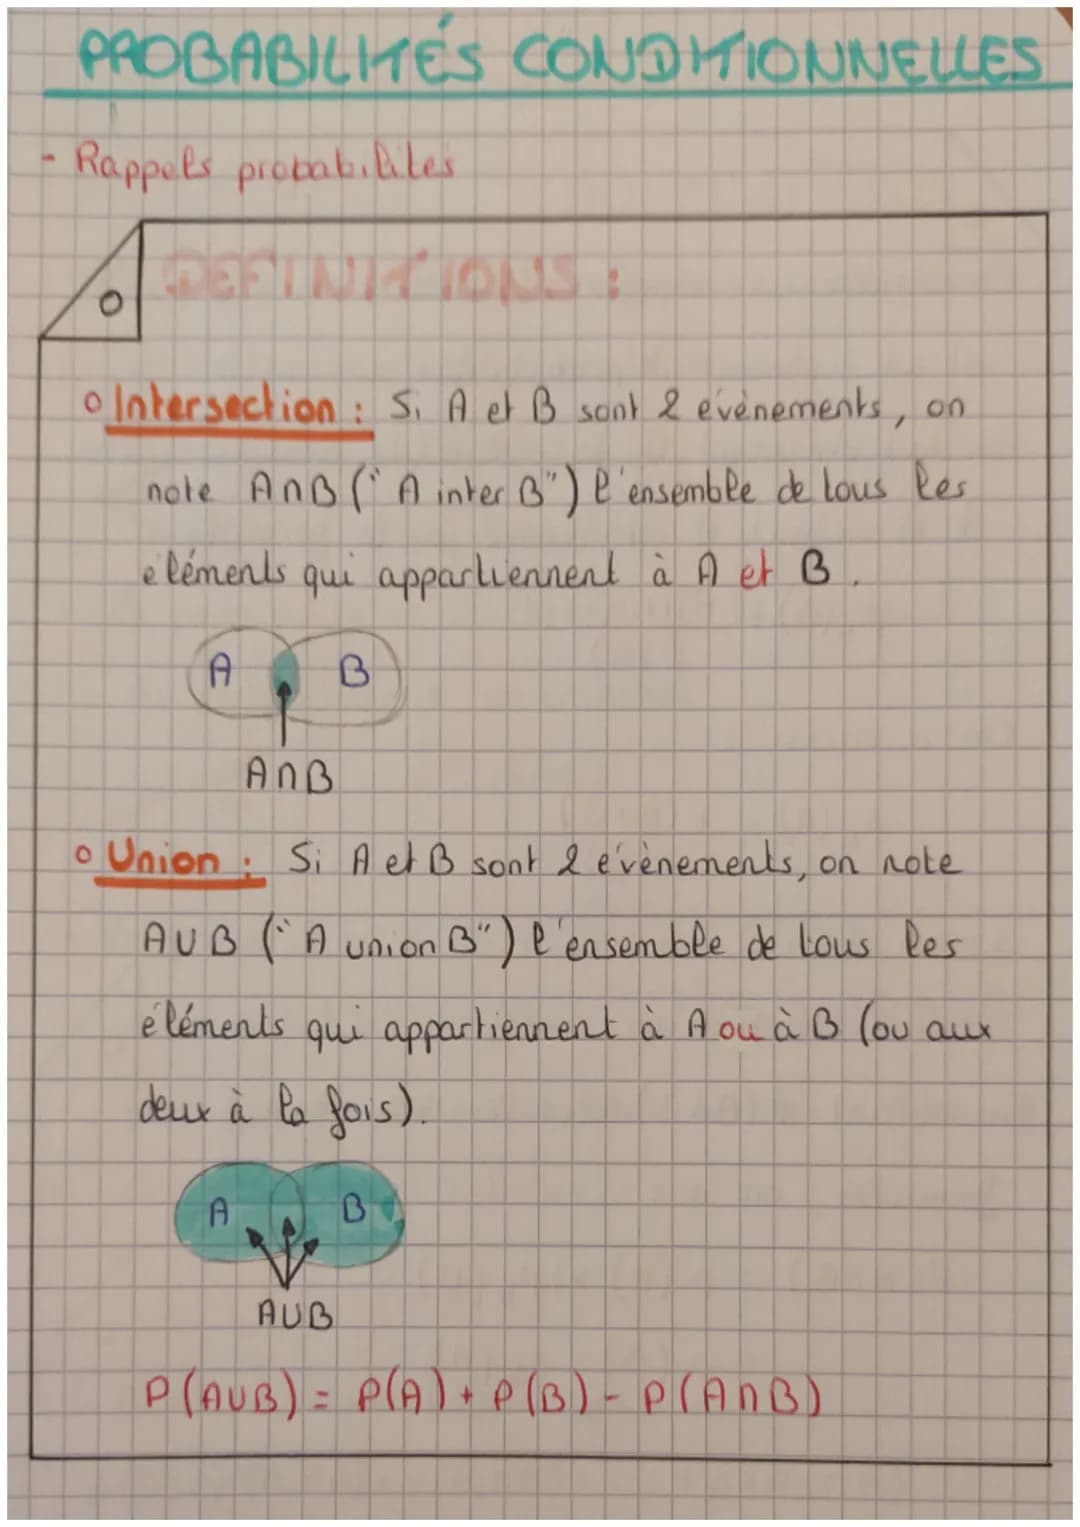 PROBABILITÉS CONDITIONNELLES
- Rappels probabilites
DEFINITIONS :
o Intersection : Si A et B sont 2 événements, on
note A∩B ("A inter B") l'ensemble de tous les
éléments qui appartiennent à A et B.
A B
A∩B
o Union : Si A et B sont 2 évènements, on note
A∪B ("A union B") l'ensemble de tous les
éléments qui appartiennent à A ou à B (ou aux
deux à la fois).
A B
A∪B
P(A∪B) = P(A) + P(B) - P(A∩B)